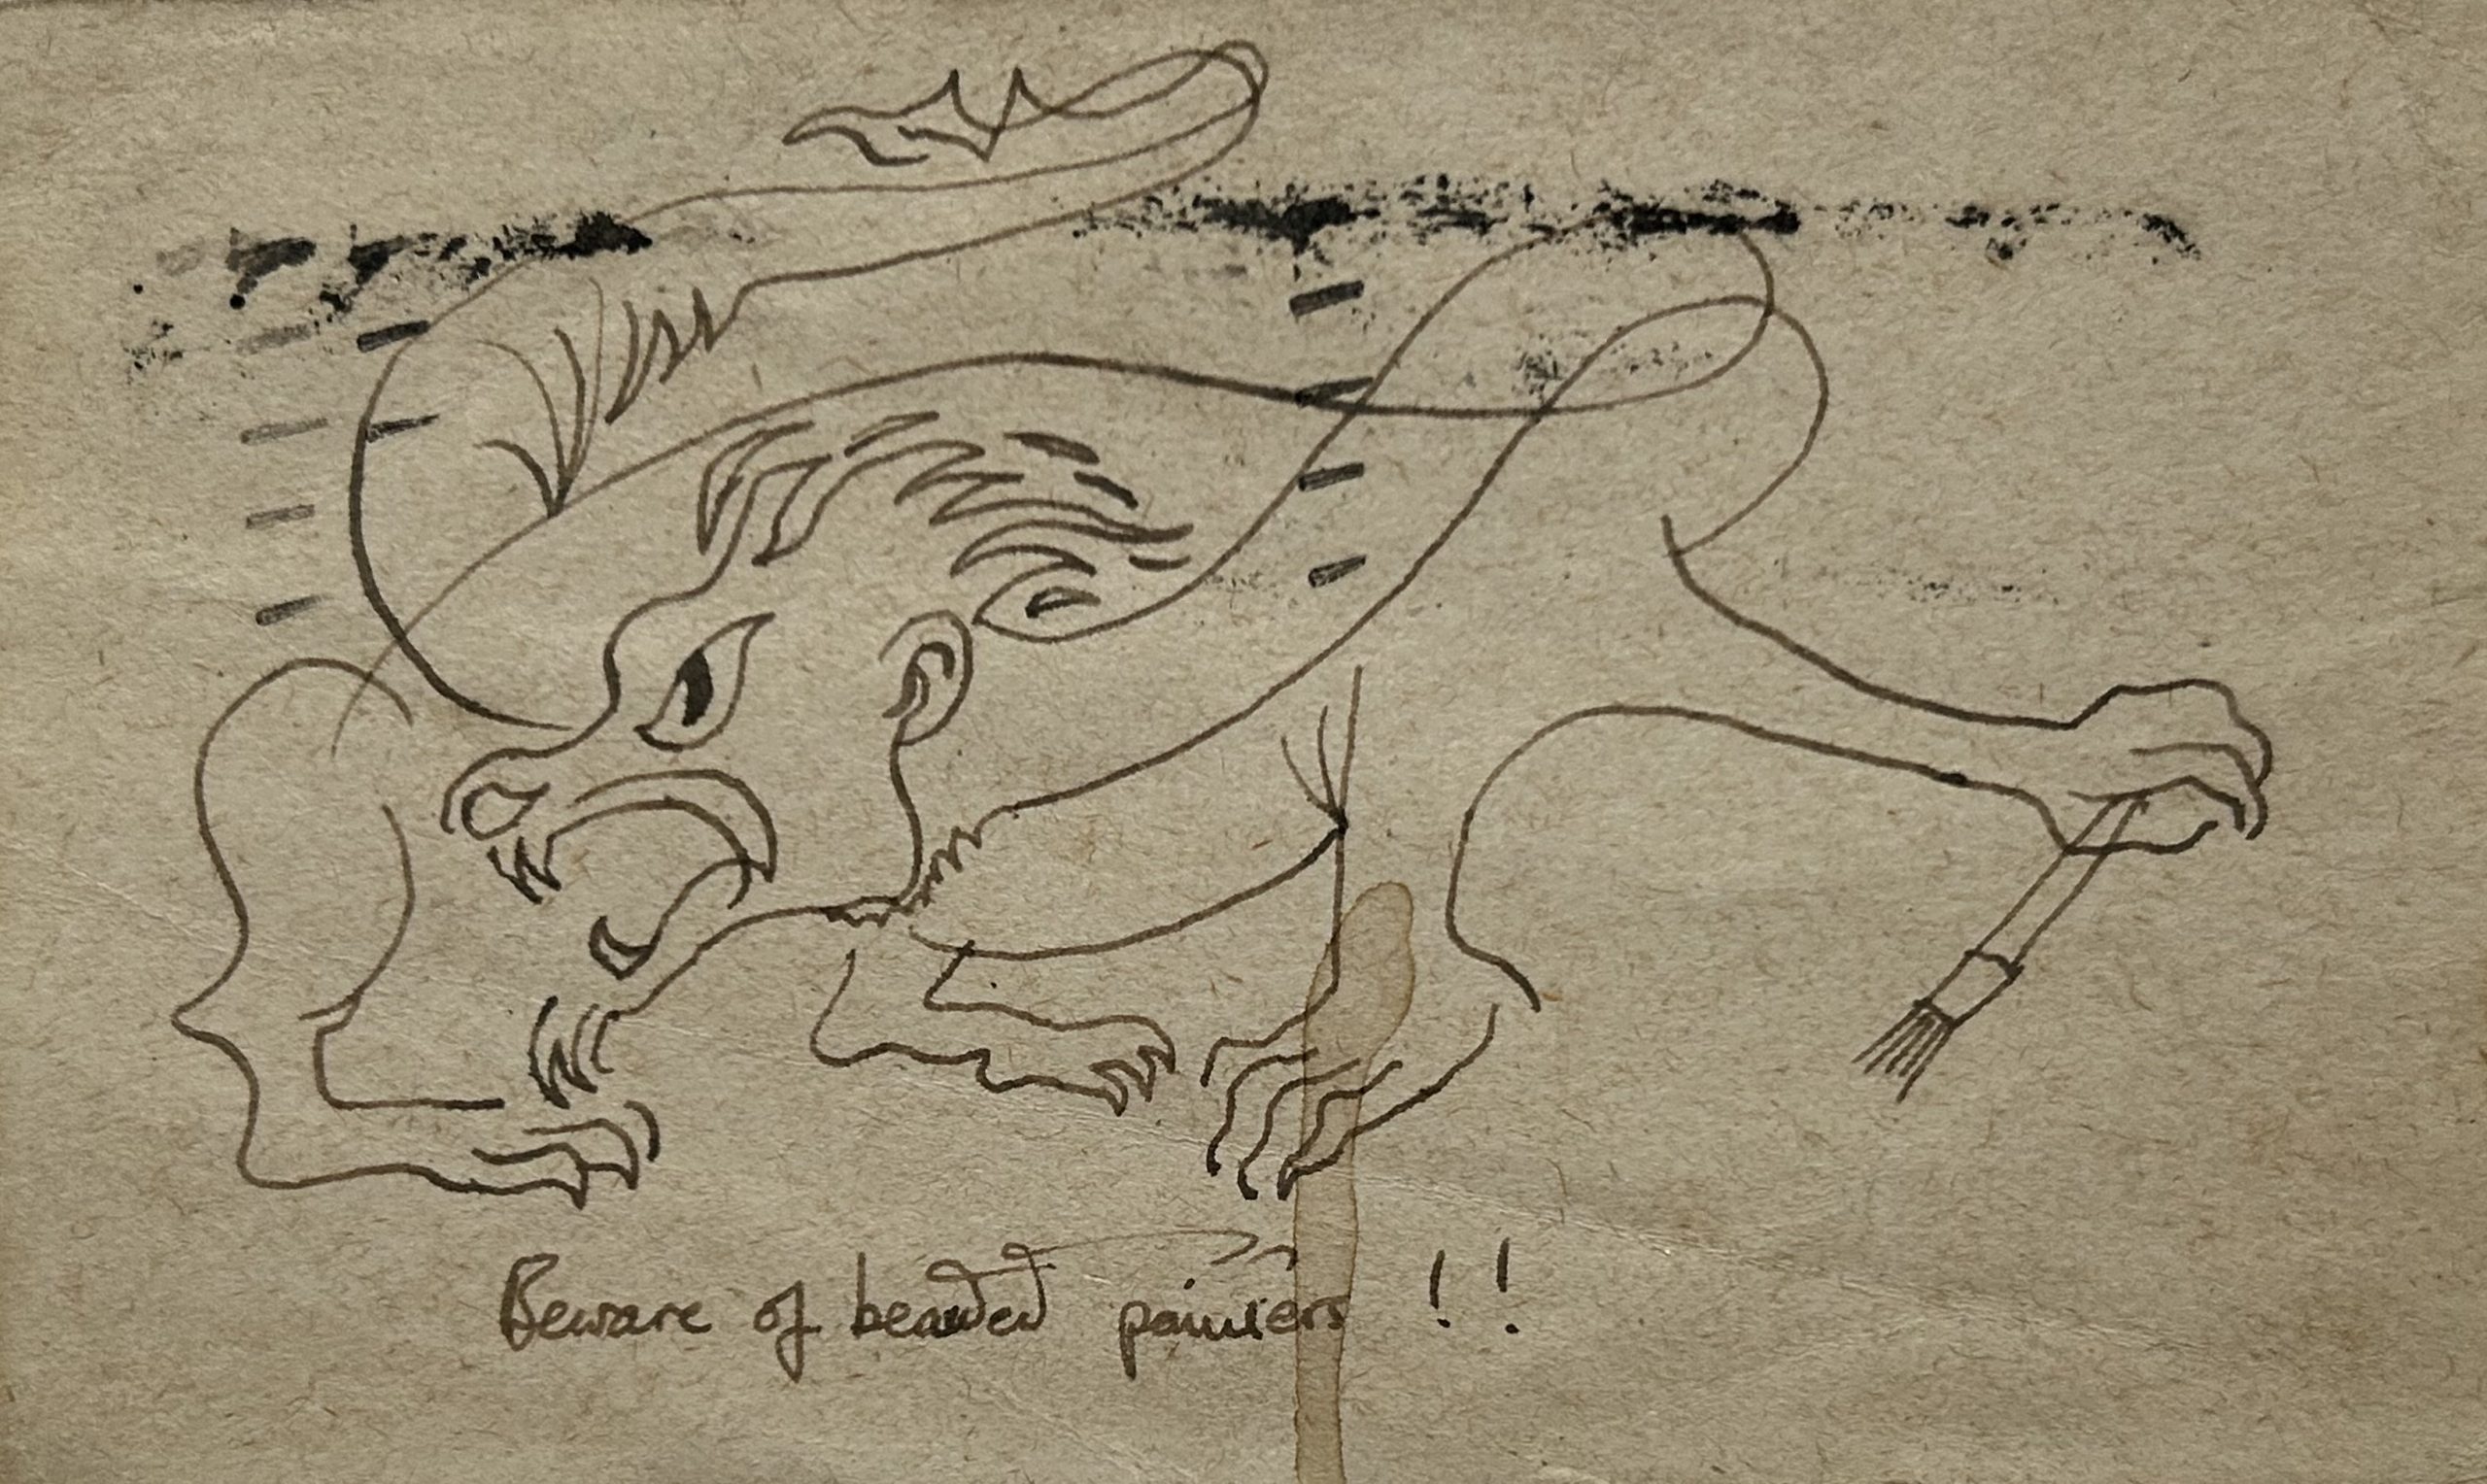 Beware of bearded painters !!